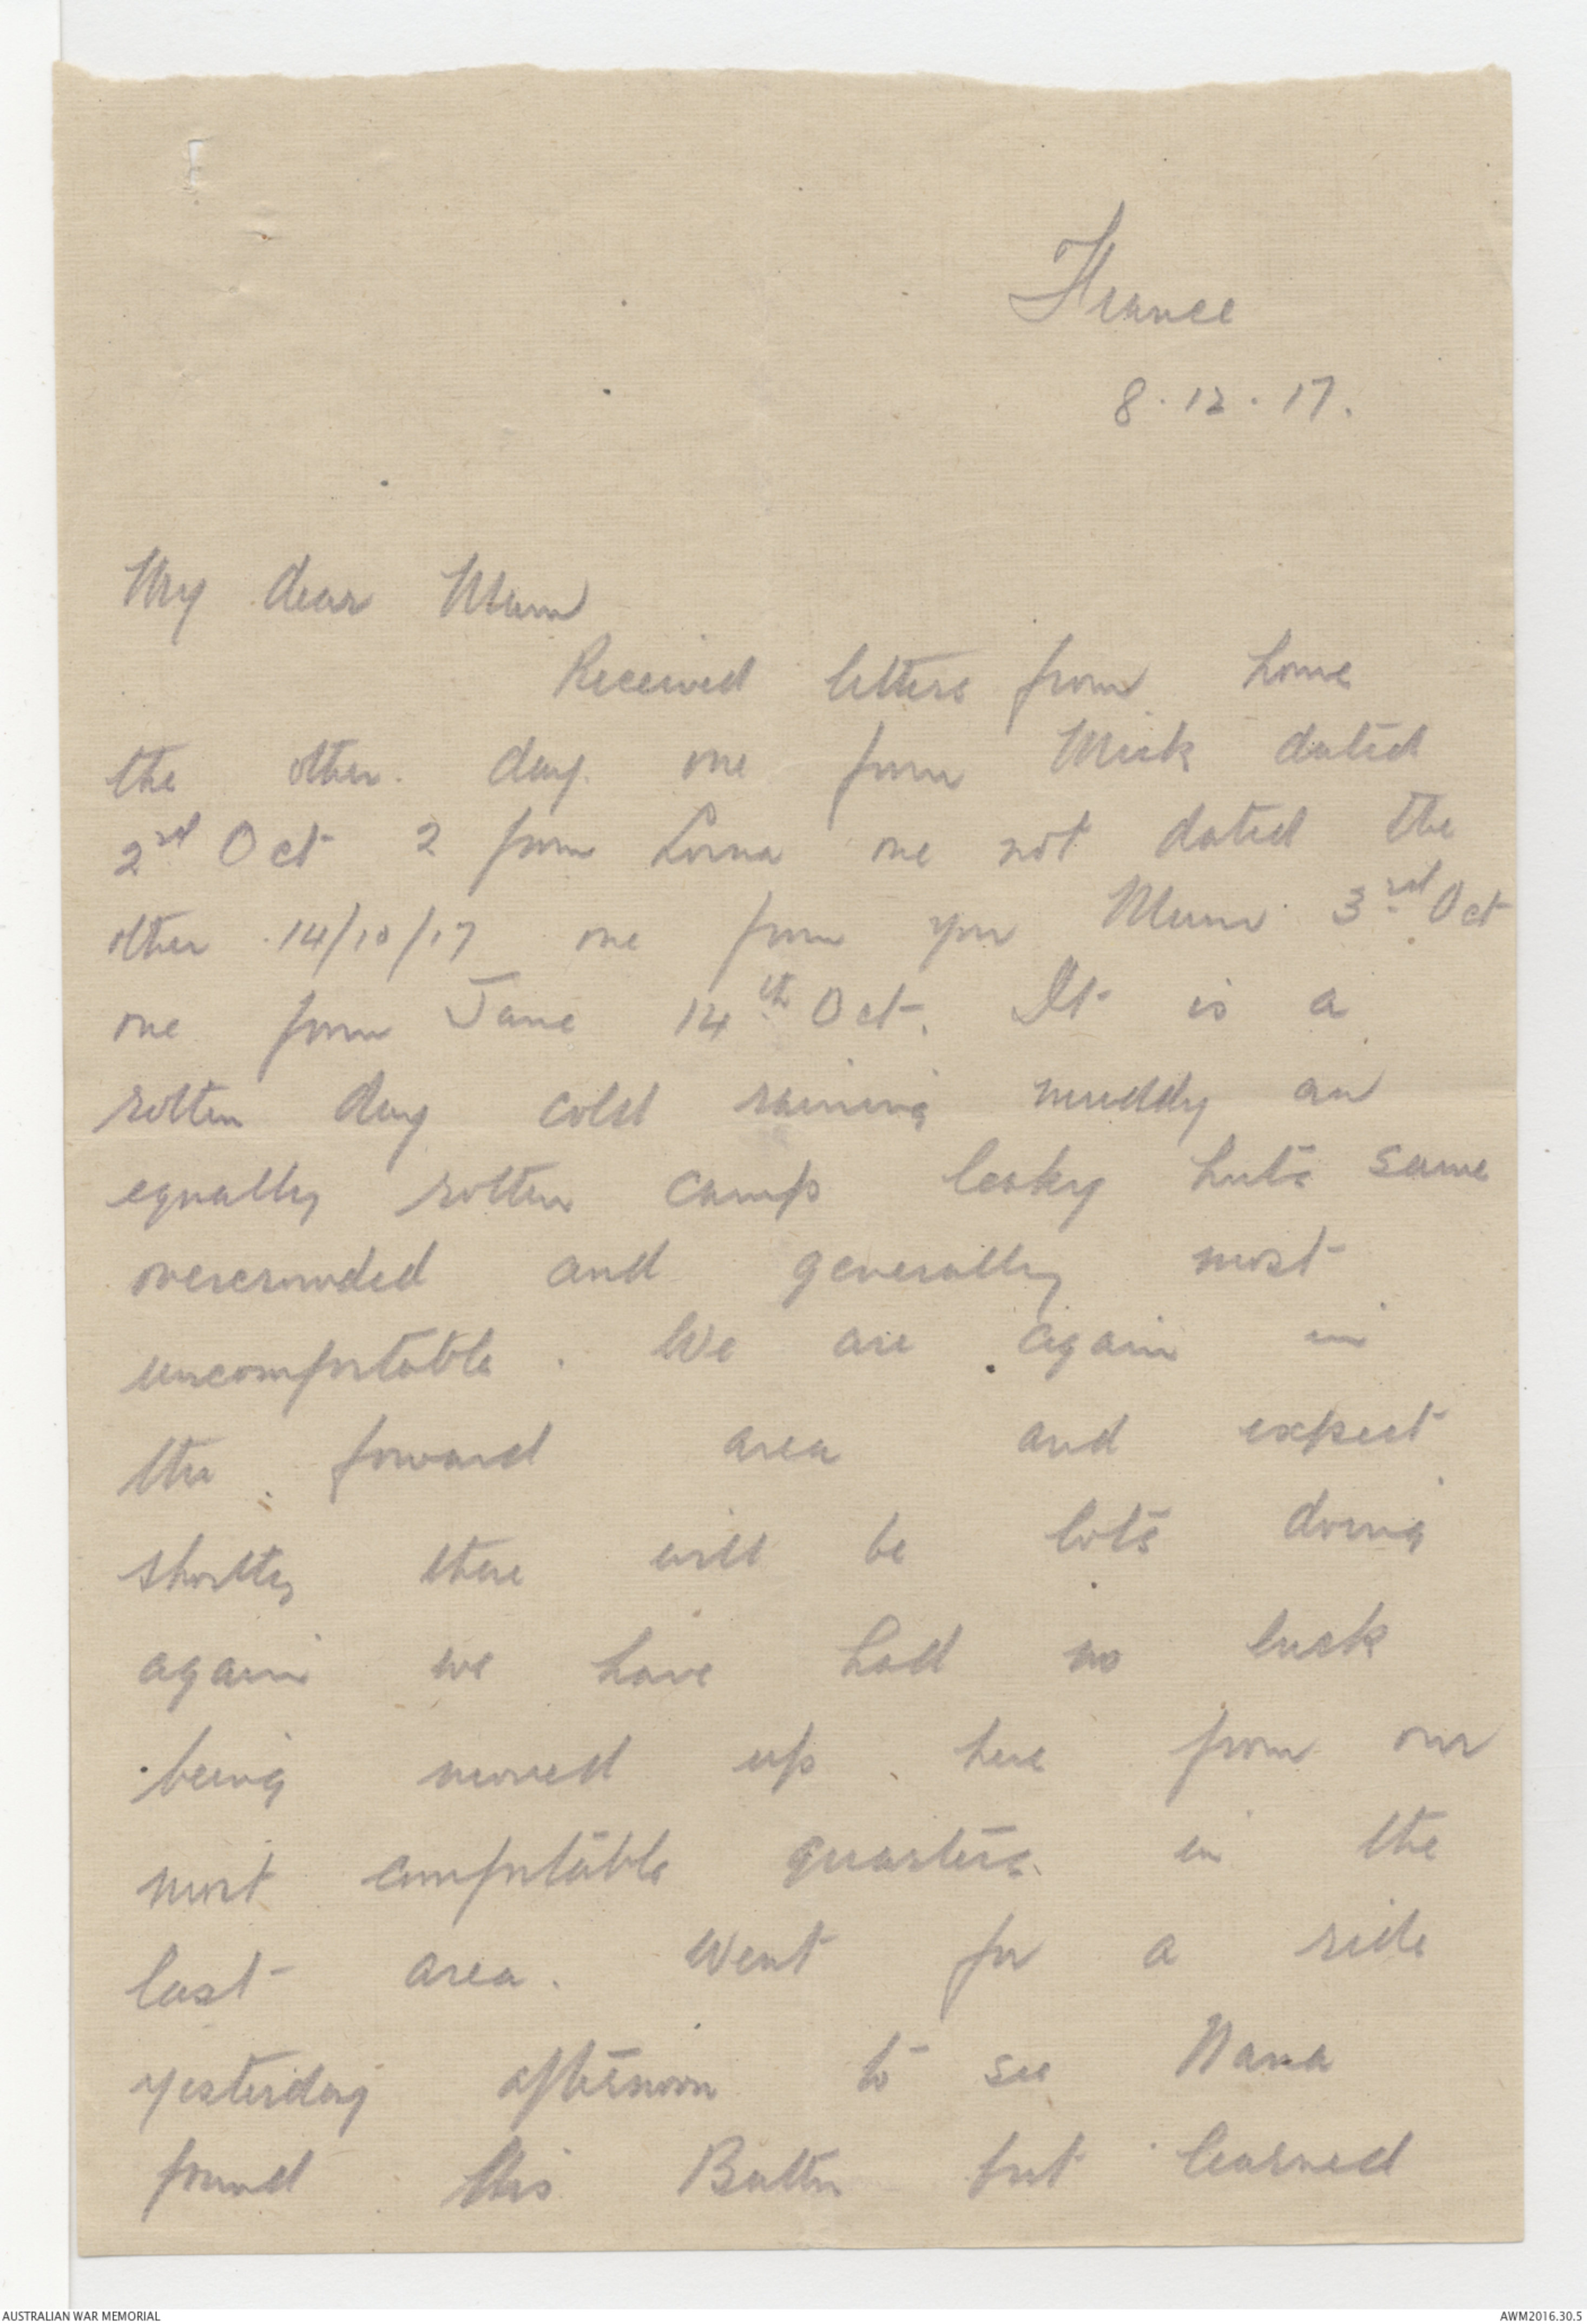 France
8.12.17.
My dear Mum
Received letters from home
the other day. one from Mick dated
2nd Oct 2 from Lorna one not dated the
other 14/10/17 one from you Mum 3rd Oct
one from Jane 14th Oct. It is a
rotten day cold raining muddy an
equally rotten camp leaky huts same
overcrowded and generally most
uncomfortable. We are again in
the forward area and expect
shortly there will be lots doing
again we have had no luck
being moved up here from our
most comfortable quarters in the
last area. Went for a ride
yesterday afternoon to see Nana
found his Battn but learned
AUSTRALIAN WAR MEMORIAL
AWM2016.30.5